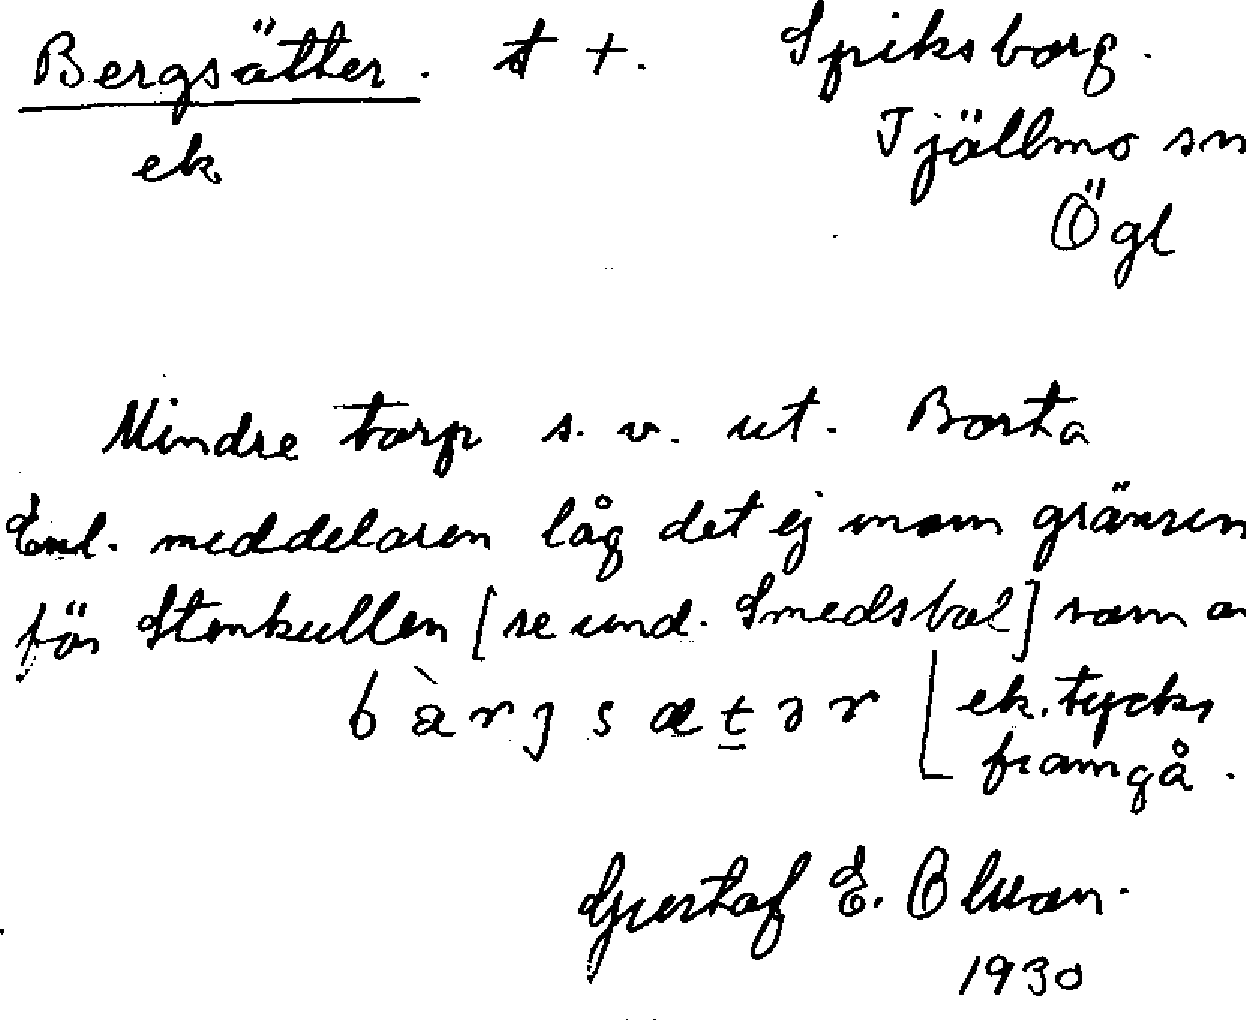 Bergsätter. t +. Spiksborg.
ek Tjällmo sn
Ögl
Mindre torp s. v. ut. Borta
Enl. meddelaren låg det ej inom gränsen
för Stenkullen [se und. Smedsbol] som
bàrjsætər ek. tycks
framgå.
Gustaf E.
1930